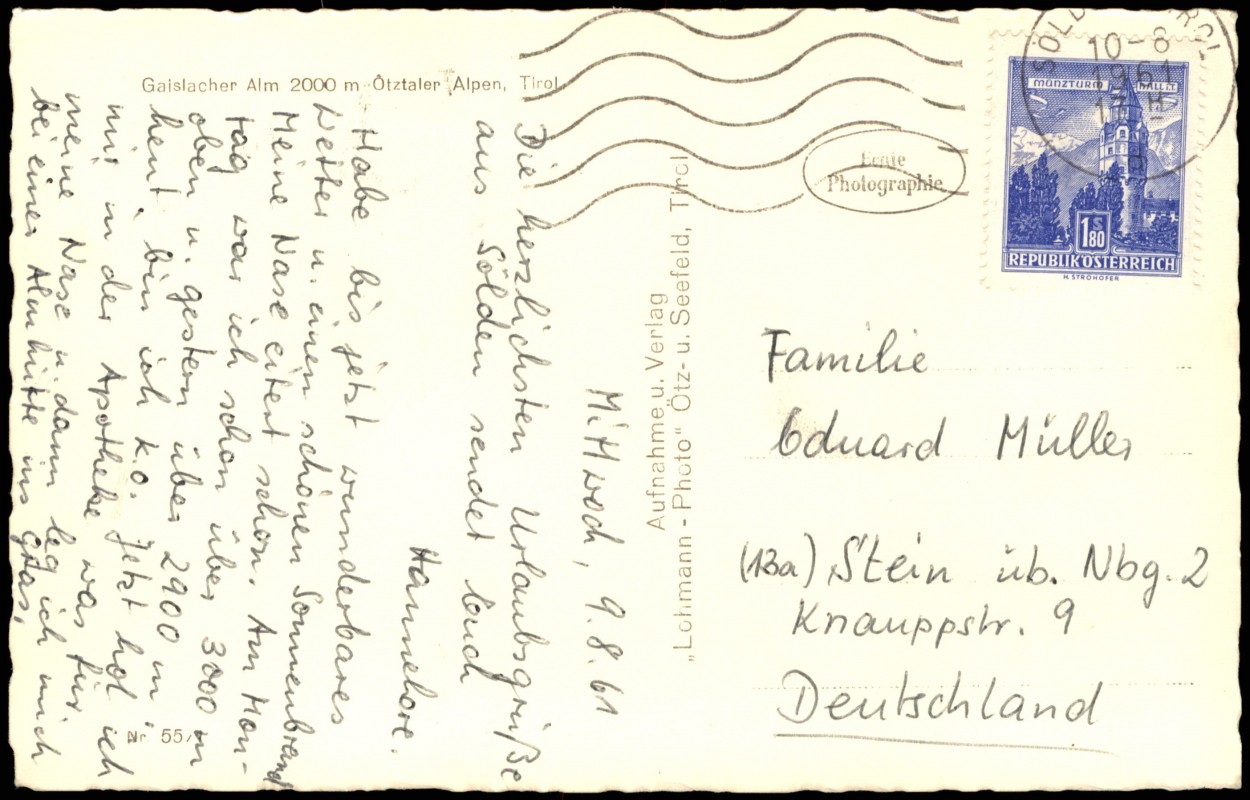 Gaislacher Alm 2000 m - Ötztaler Alpen, Tirol
Mittwoch, 9.8.61
Die herzlichsten Urlaubsgrüße
aus Sölden sendet Euch
Hannelore.
Habe bis jetzt wunderbares
Wetter u. einen schönen Sonnenbrand
Meine Nase eitert schon. Am Mon-
tag war ich schon über 3000 m
oben u. gestern über 2900 m
heut, bin ich k.o. Jetzt hol' ich
mir in der Apotheke was für
meine Nase u. dann leg ich mich
bei einer Almhütte ins Gras.
Nr 55/
Aufnahme u. Verlag
„Lohmann - Photo" Ötz- u. Seefeld, Tirol
Echte
Photographie
SÖLD
10-8
1961
17 H
MÜNZTURM
HALL I.T.
1 S 80
REPUBLIK ÖSTERREICH
H. STROHOFER
Familie
Eduard Müller
(13a) Stein üb. Nbg. 2
Knauppstr. 9
Deutschland